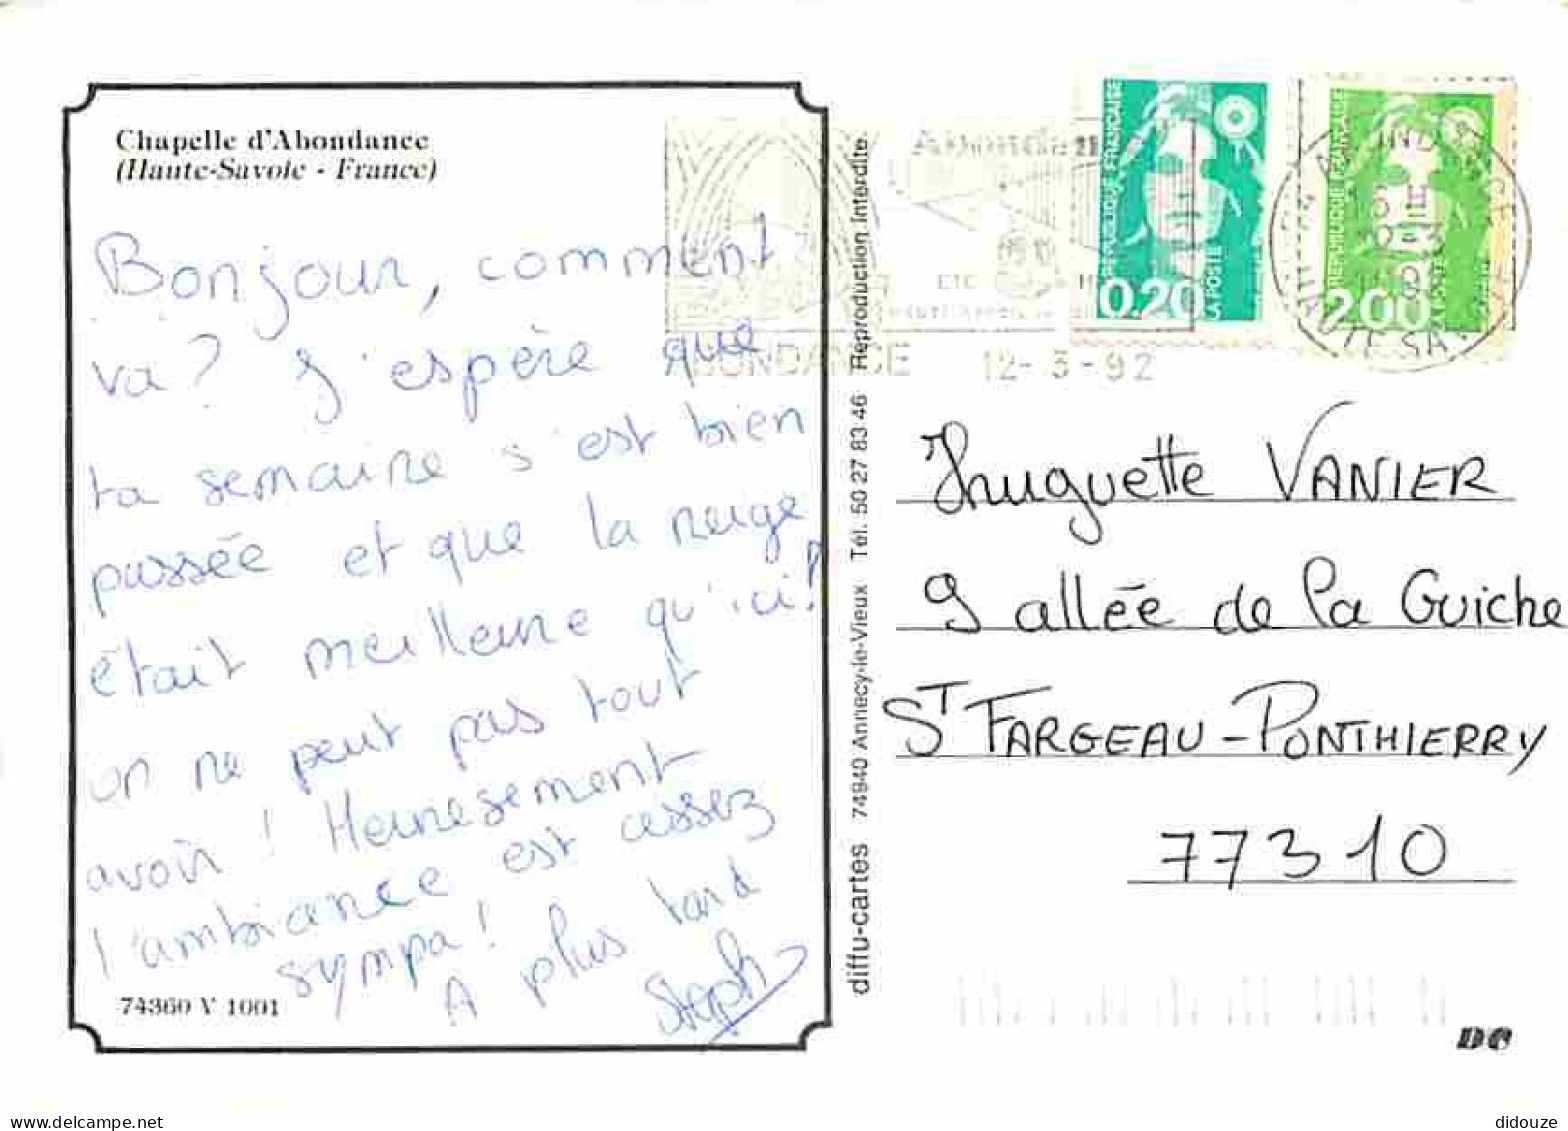 Chapelle d'Abondance
(Haute-Savoie - France)
Bonjour, comment
va? J'espère que
ta semaine s'est bien
passée et que la neige
était meilleure qu'ici!
on ne peut pas tout
avoir! Heuresement
l'ambiance est assez
sympa!
A plus tard
Steph
74360 V 1001
diffu-cartes 74940 Annecy-le-Vieux Tél. 50 27 83 46 Reproduction interdite
ABONDANCE 12-3-92
RÉPUBLIQUE FRANÇAISE
0,20 LA POSTE
RÉPUBLIQUE FRANÇAISE
2,00
HAUTE SAVOIE
Huguette VANIER
9 allée de la Guiche
ST FARGEAU-PONTHIERRY
77310
DC
www.delcampe.net
didouze